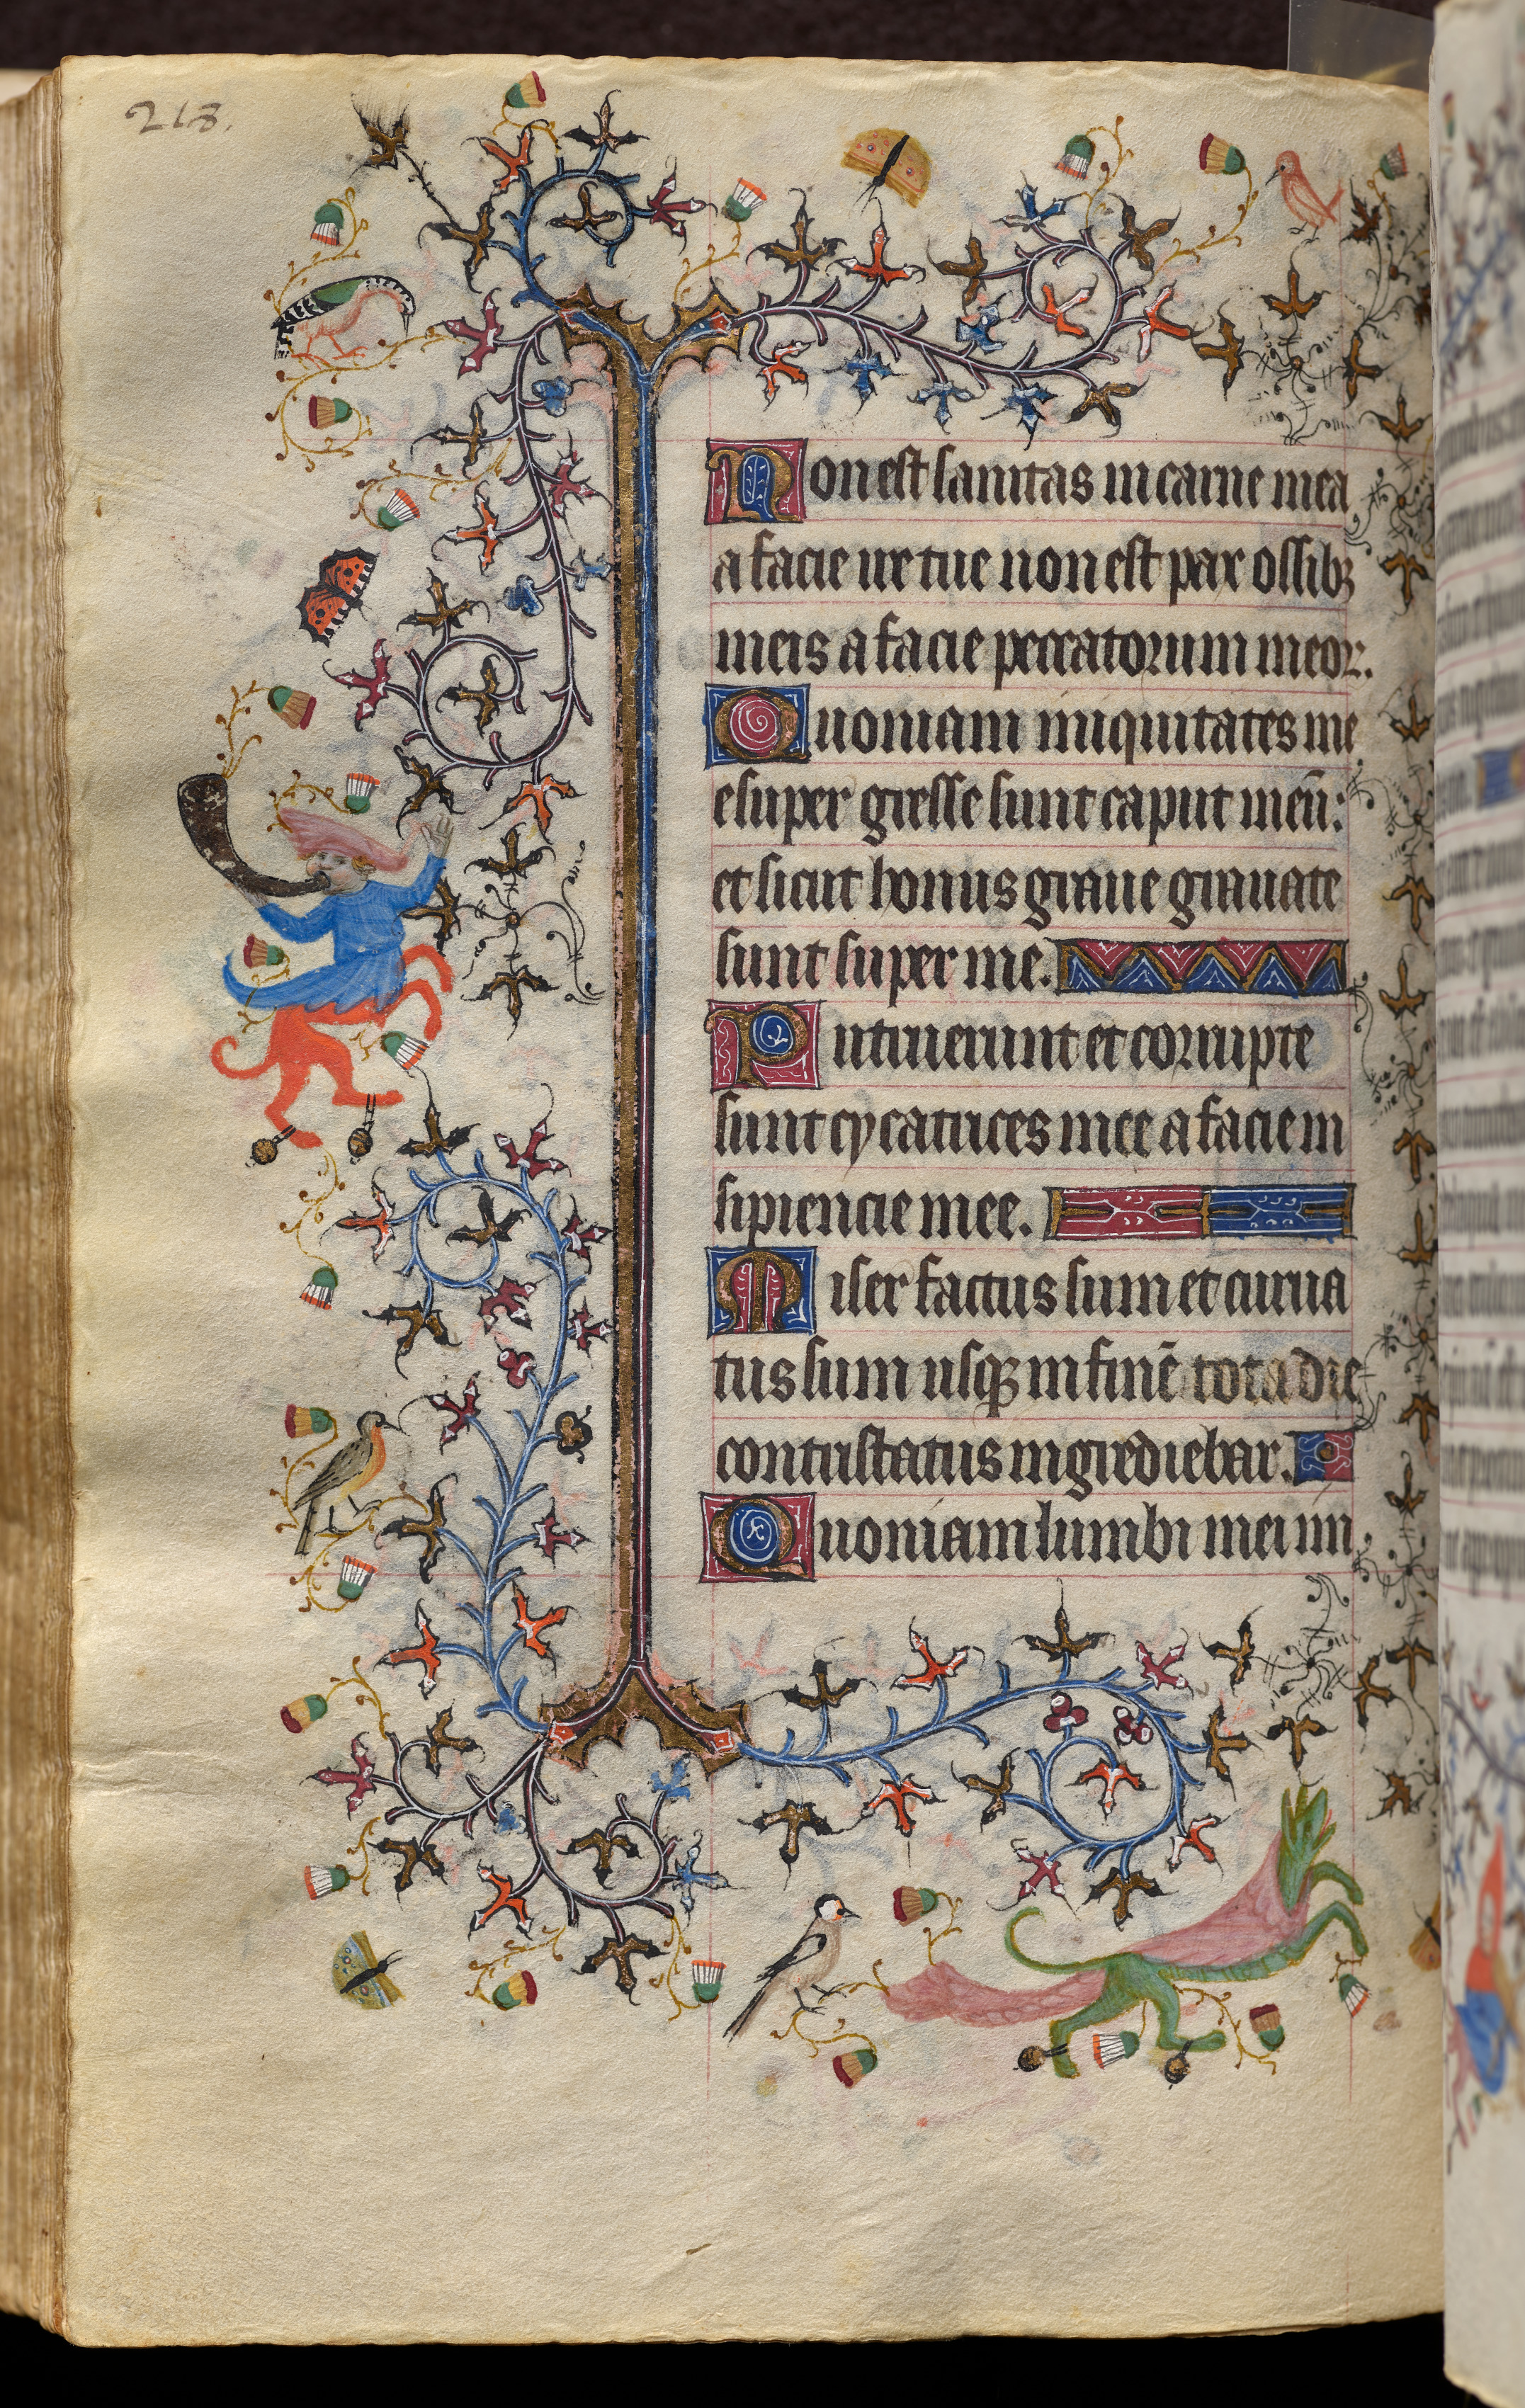 218.
Non est sanitas in carne mea
a facie ire tue non est pax ossibꝫ
meis a facie peccatorum meoꝝ.
Quoniam iniquitates me
e super gresse sunt caput meū:
et sicut honus graue grauate
sunt super me.
Putruerunt et corrupte
sunt cycatrices mee a facie in
sipiencie mee.
Miser factus sum et curua
tus sum usqꝫ in finē tota die
contristatus ingrediebar.
Quoniam lumbi mei im